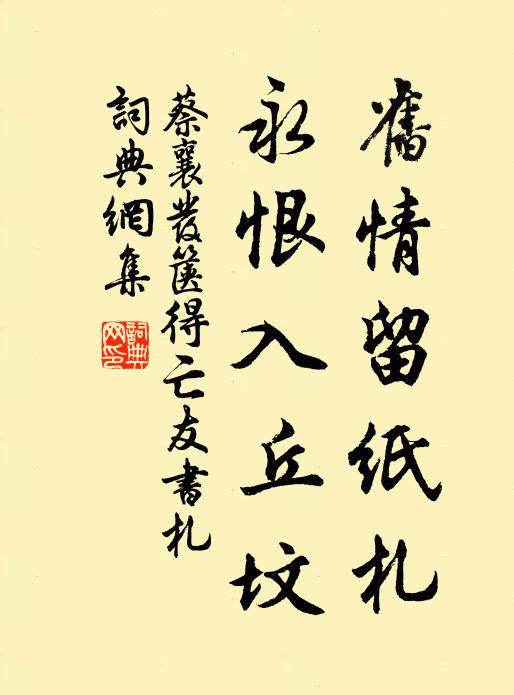 舊情留紙札
永恨入丘墳
蔡襄發篋得亡友書札
詞典網集
詞典網印